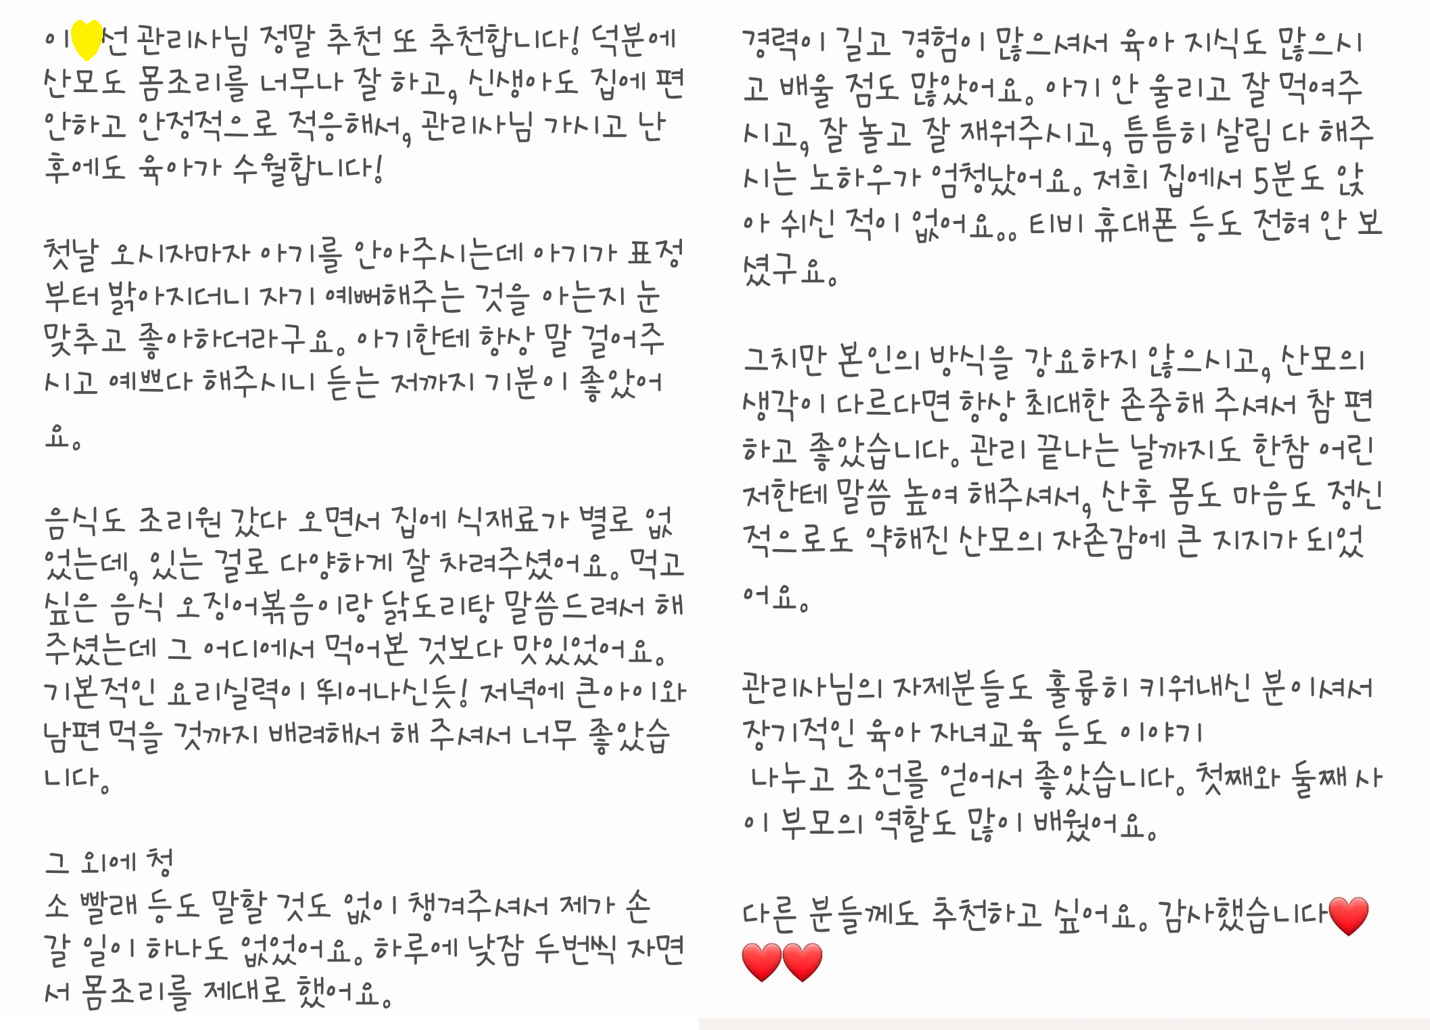 이💛선 관리사님 정말 추천 또 추천합니다! 덕분에
산모도 몸조리를 너무나 잘 하고, 신생아도 집에 편
안하고 안정적으로 적응해서, 관리사님 가시고 난
후에도 육아가 수월합니다!
첫날 오시자마자 아기를 안아주시는데 아기가 표정
부터 밝아지더니 자기 예뻐해주는 것을 아는지 눈
맞추고 좋아하더라구요. 아기한테 항상 말 걸어주
시고 예쁘다 해주시니 듣는 저까지 기분이 좋았어
요.
음식도 조리원 갔다 오면서 집에 식재료가 별로 없
었는데, 있는 걸로 다양하게 잘 차려주셨어요. 먹고
싶은 음식 오징어볶음이랑 닭도리탕 말씀드려서 해
주셨는데 그 어디에서 먹어본 것보다 맛있었어요.
기본적인 요리실력이 뛰어나신듯! 저녁에 큰아이와
남편 먹을 것까지 배려해서 해 주셔서 너무 좋았습
니다.
그 외에 청
소 빨래 등도 말할 것도 없이 챙겨주셔서 제가 손
갈 일이 하나도 없었어요. 하루에 낮잠 두번씩 자면
서 몸조리를 제대로 했어요.
경력이 길고 경험이 많으셔서 육아 지식도 많으시
고 배울 점도 많았어요. 아기 안 울리고 잘 먹여주
시고, 잘 놀고 잘 재워주시고, 틈틈히 살림 다 해주
시는 노하우가 엄청났어요. 저희 집에서 5분도 앉
아 쉬신 적이 없어요.. 티비 휴대폰 등도 전혀 안 보
셨구요.
그치만 본인의 방식을 강요하지 않으시고, 산모의
생각이 다르다면 항상 최대한 존중해 주셔서 참 편
하고 좋았습니다. 관리 끝나는 날까지도 한참 어린
저한테 말씀 높여 해주셔서, 산후 몸도 마음도 정신
적으로도 약해진 산모의 자존감에 큰 지지가 되었
어요.
관리사님의 자제분들도 훌륭히 키워내신 분이셔서
장기적인 육아 자녀교육 등도 이야기
나누고 조언를 얻어서 좋았습니다. 첫째와 둘째 사
이 부모의 역할도 많이 배웠어요.
다른 분들께도 추천하고 싶어요. 감사했습니다❤️
❤️❤️